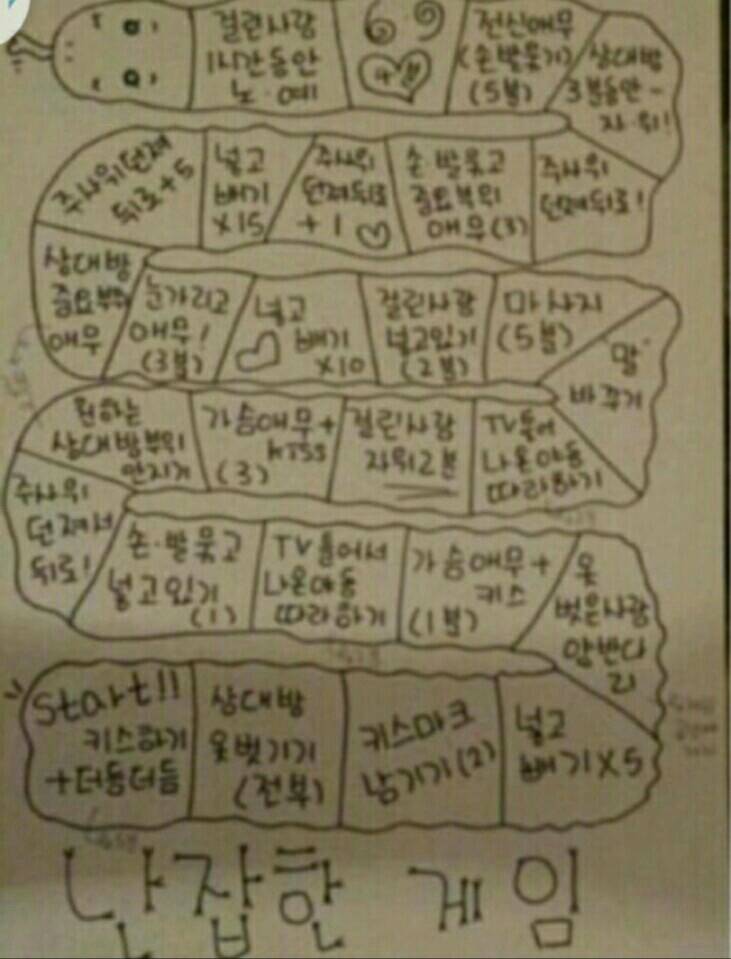 걸린사람
1시간동안
노·예
69
전신애무
(손발묶기)
(5분)
상대방
3분동안-
자·위!
주사위던져
뒤로+5
넣고
빼기
X15
주사위
던져뒤로
+1♡
손·발묶고
중요부위
애무(3)
주사위
던져뒤로!
상대방
중요부위
애무
눈가리고
애무!
(3분)
넣고
♡ 빼기
X10
걸린사람
넣고있기
(2분)
마사지
(5분)
"말"
바꾸기
원하는
상대방부위
만지기
가슴애무+
kiss
(3)
걸린사람
자위2분
TV틀어
나온야동
따라하기
주사위
던져서
뒤로!
손·발묶고
넣고있기
(1)
TV틀어서
나온야동
따라하기
가슴애무+
키스
(1분)
옷
벗은사람
Start!!
키스하기
+더듬더듬
상대방
옷벗기기
(전부)
키스마크
남기기(2)
넣고
빼기X5
난잡한 게임